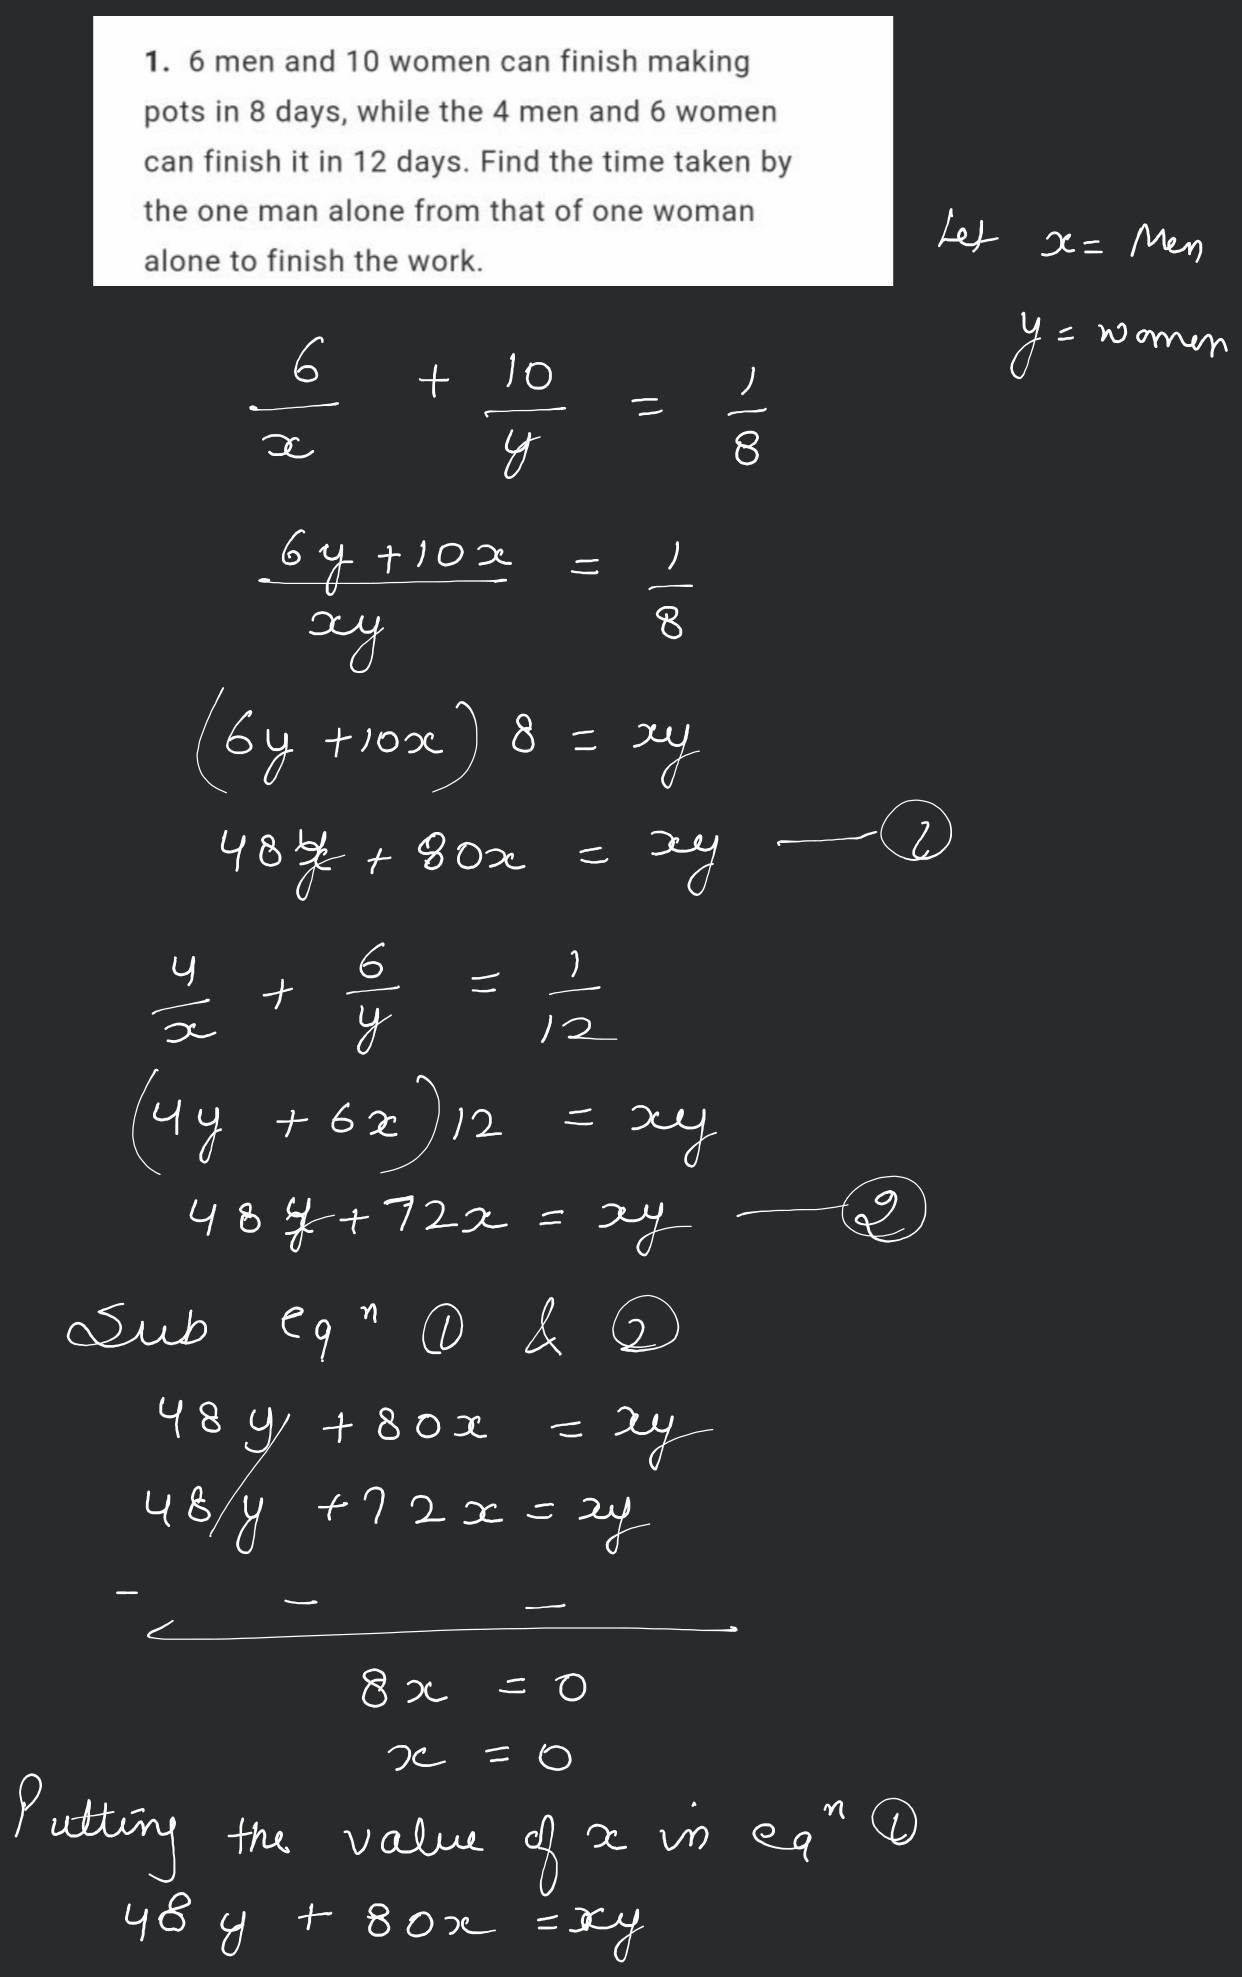 1. 6 men and 10 women can finish making
pots in 8 days, while the 4 men and 6 women
can finish it in 12 days. Find the time taken by
the one man alone from that of one woman
alone to finish the work.
Let x = Men
y = women
6/x + 10/y = 1/8
(6y + 10x)/xy = 1/8
(6y + 10x) 8 = xy
48y + 80x = xy — ①
4/x + 6/y = 1/12
(4y + 6x) 12 = xy
48y + 72x = xy — ②
Sub eqⁿ ① & ②
48y + 80x = xy
48y + 72x = xy
- - -
8x = 0
x = 0
Putting the value of x in eqⁿ ①
48y + 80x = xy